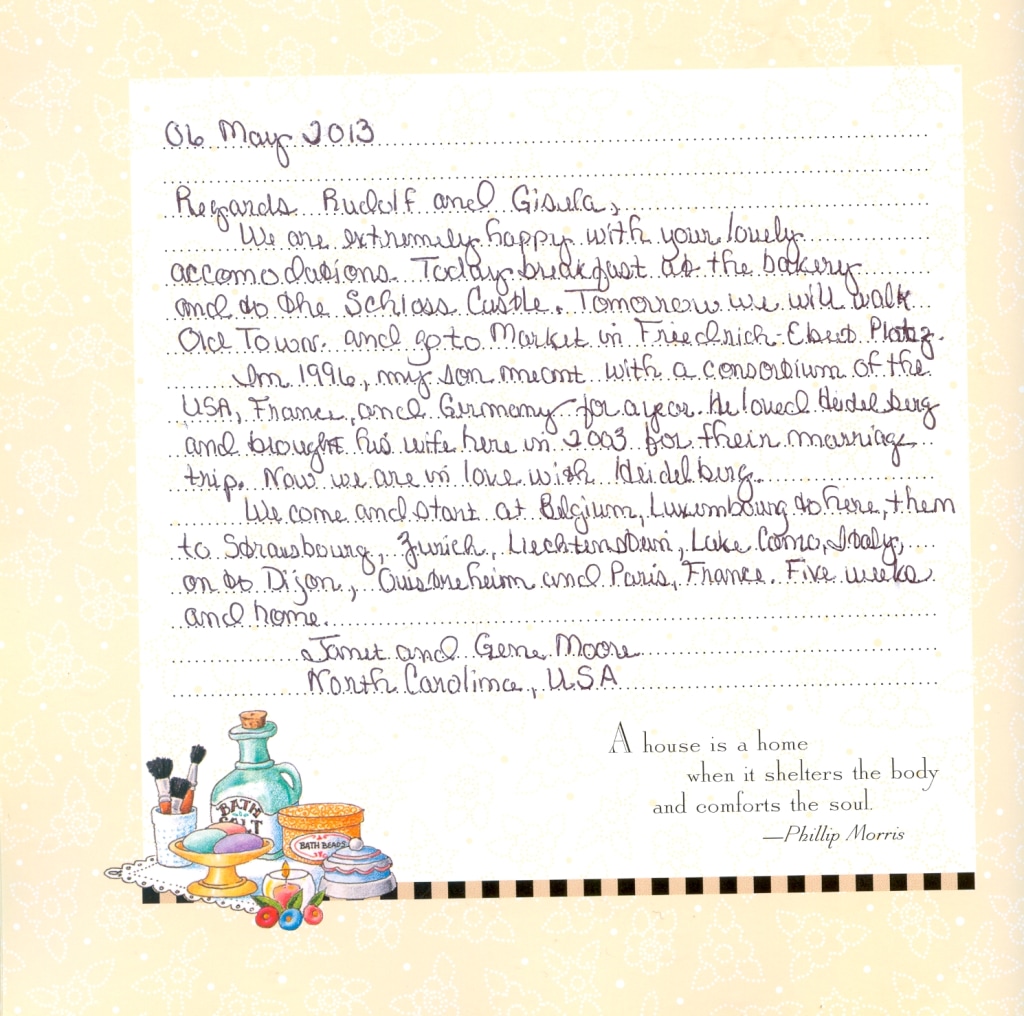 06 May 2013
Regards Rudolf and Gisula,
We are extremely happy with your lovely
accomodasions. Today breakfast at the bakery
and to the Schloss Castle. Tomorrow we will walk
Old Town. and go to Market in Friedrich-Ebert Platz.
In 1996, my son meant with a consortium of the
USA, France, and Germany for a year. He loved Heidelberg
and brought his wife here in 2003 for their marriage
trip. Now we are in love with Heidelberg.
We come and start at Belgium, Luxembourg to here, them
to Strausbourg, Zurich, Liechtenstein, Lake Como, Italy,
on to Dijon, Ouistreheim and Paris, France. Five weeks
and home.
Janet and Gene Moore
North Carolina, USA
A house is a home
when it shelters the body
and comforts the soul.
—Phillip Morris
BATH
SALT
BATH BEADS